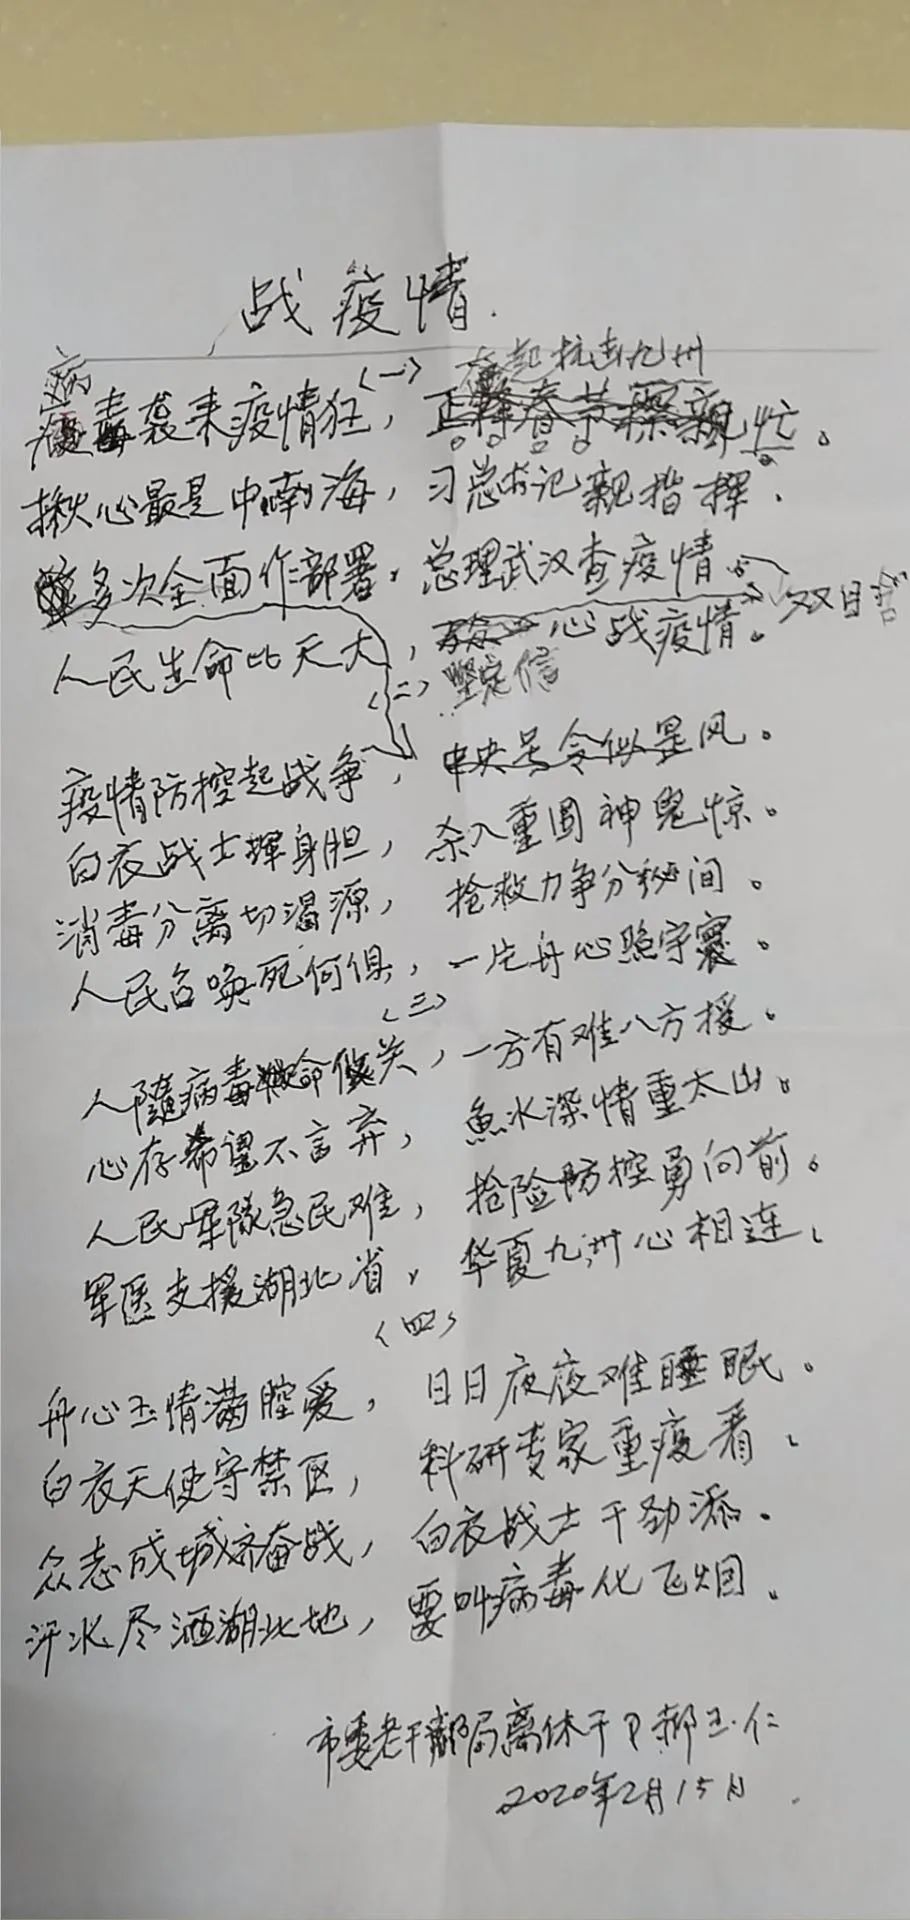 战疫情.
(一)
病
起抗击九州
病毒袭来疫情狂，正春节探亲忙。
揪心最是中南海，习总书记亲指挥.
多次全面作部署，总理武汉查疫情。
双目
人民生命比天大，心战疫情。
坚定信
(二)
疫情防控起战争，中央号令似星风。
白衣战士挥身胆，杀入重围神鬼惊。
消毒分离切渴源，抢救力争分秒间。
人民召唤死何俱，一片舟心照宇寰。
(三)
人隨病毒命攸关，一方有难八方援。
心存希望不言弃，魚水深情重太山。
人民军隊急民难，抢险防控勇向前。
军医支援湖北省，华夏九州心相连、
(四)
舟心玉情满腔爱，日日夜夜难睡眠。
白衣天使守禁区，科研专家重疫看、
众志成城齐奋战，白衣战士干劲添。
汗水尽洒湖北地，要叫病毒化飞烟.
市委老干部局离休干卩郝玉仁
2020年2月15日